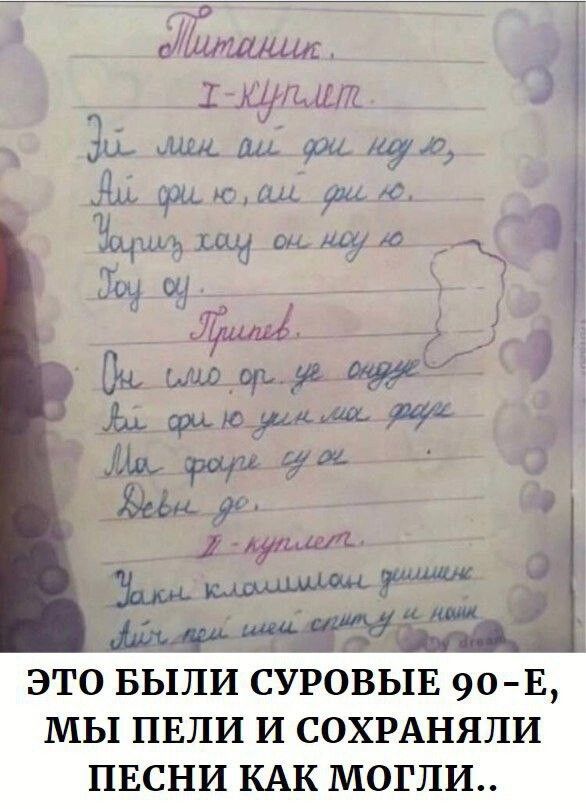 Титаник.
I-куплет.
Эй мен ай фи ноу ю,
Ай фи ю, ай фи ю.
Уариз хау он ноу ю
Гоу оу.
Припев.
Он смо ор уе ондуе
Ай фи ю уин ма фаре
Ма фаре су ог
Девн до.
II-куплет.
Уакн клашиан
Айч пей шей спит у и найн
ЭТО БЫЛИ СУРОВЫЕ 90-Е,
МЫ ПЕЛИ И СОХРАНЯЛИ
ПЕСНИ КАК МОГЛИ..